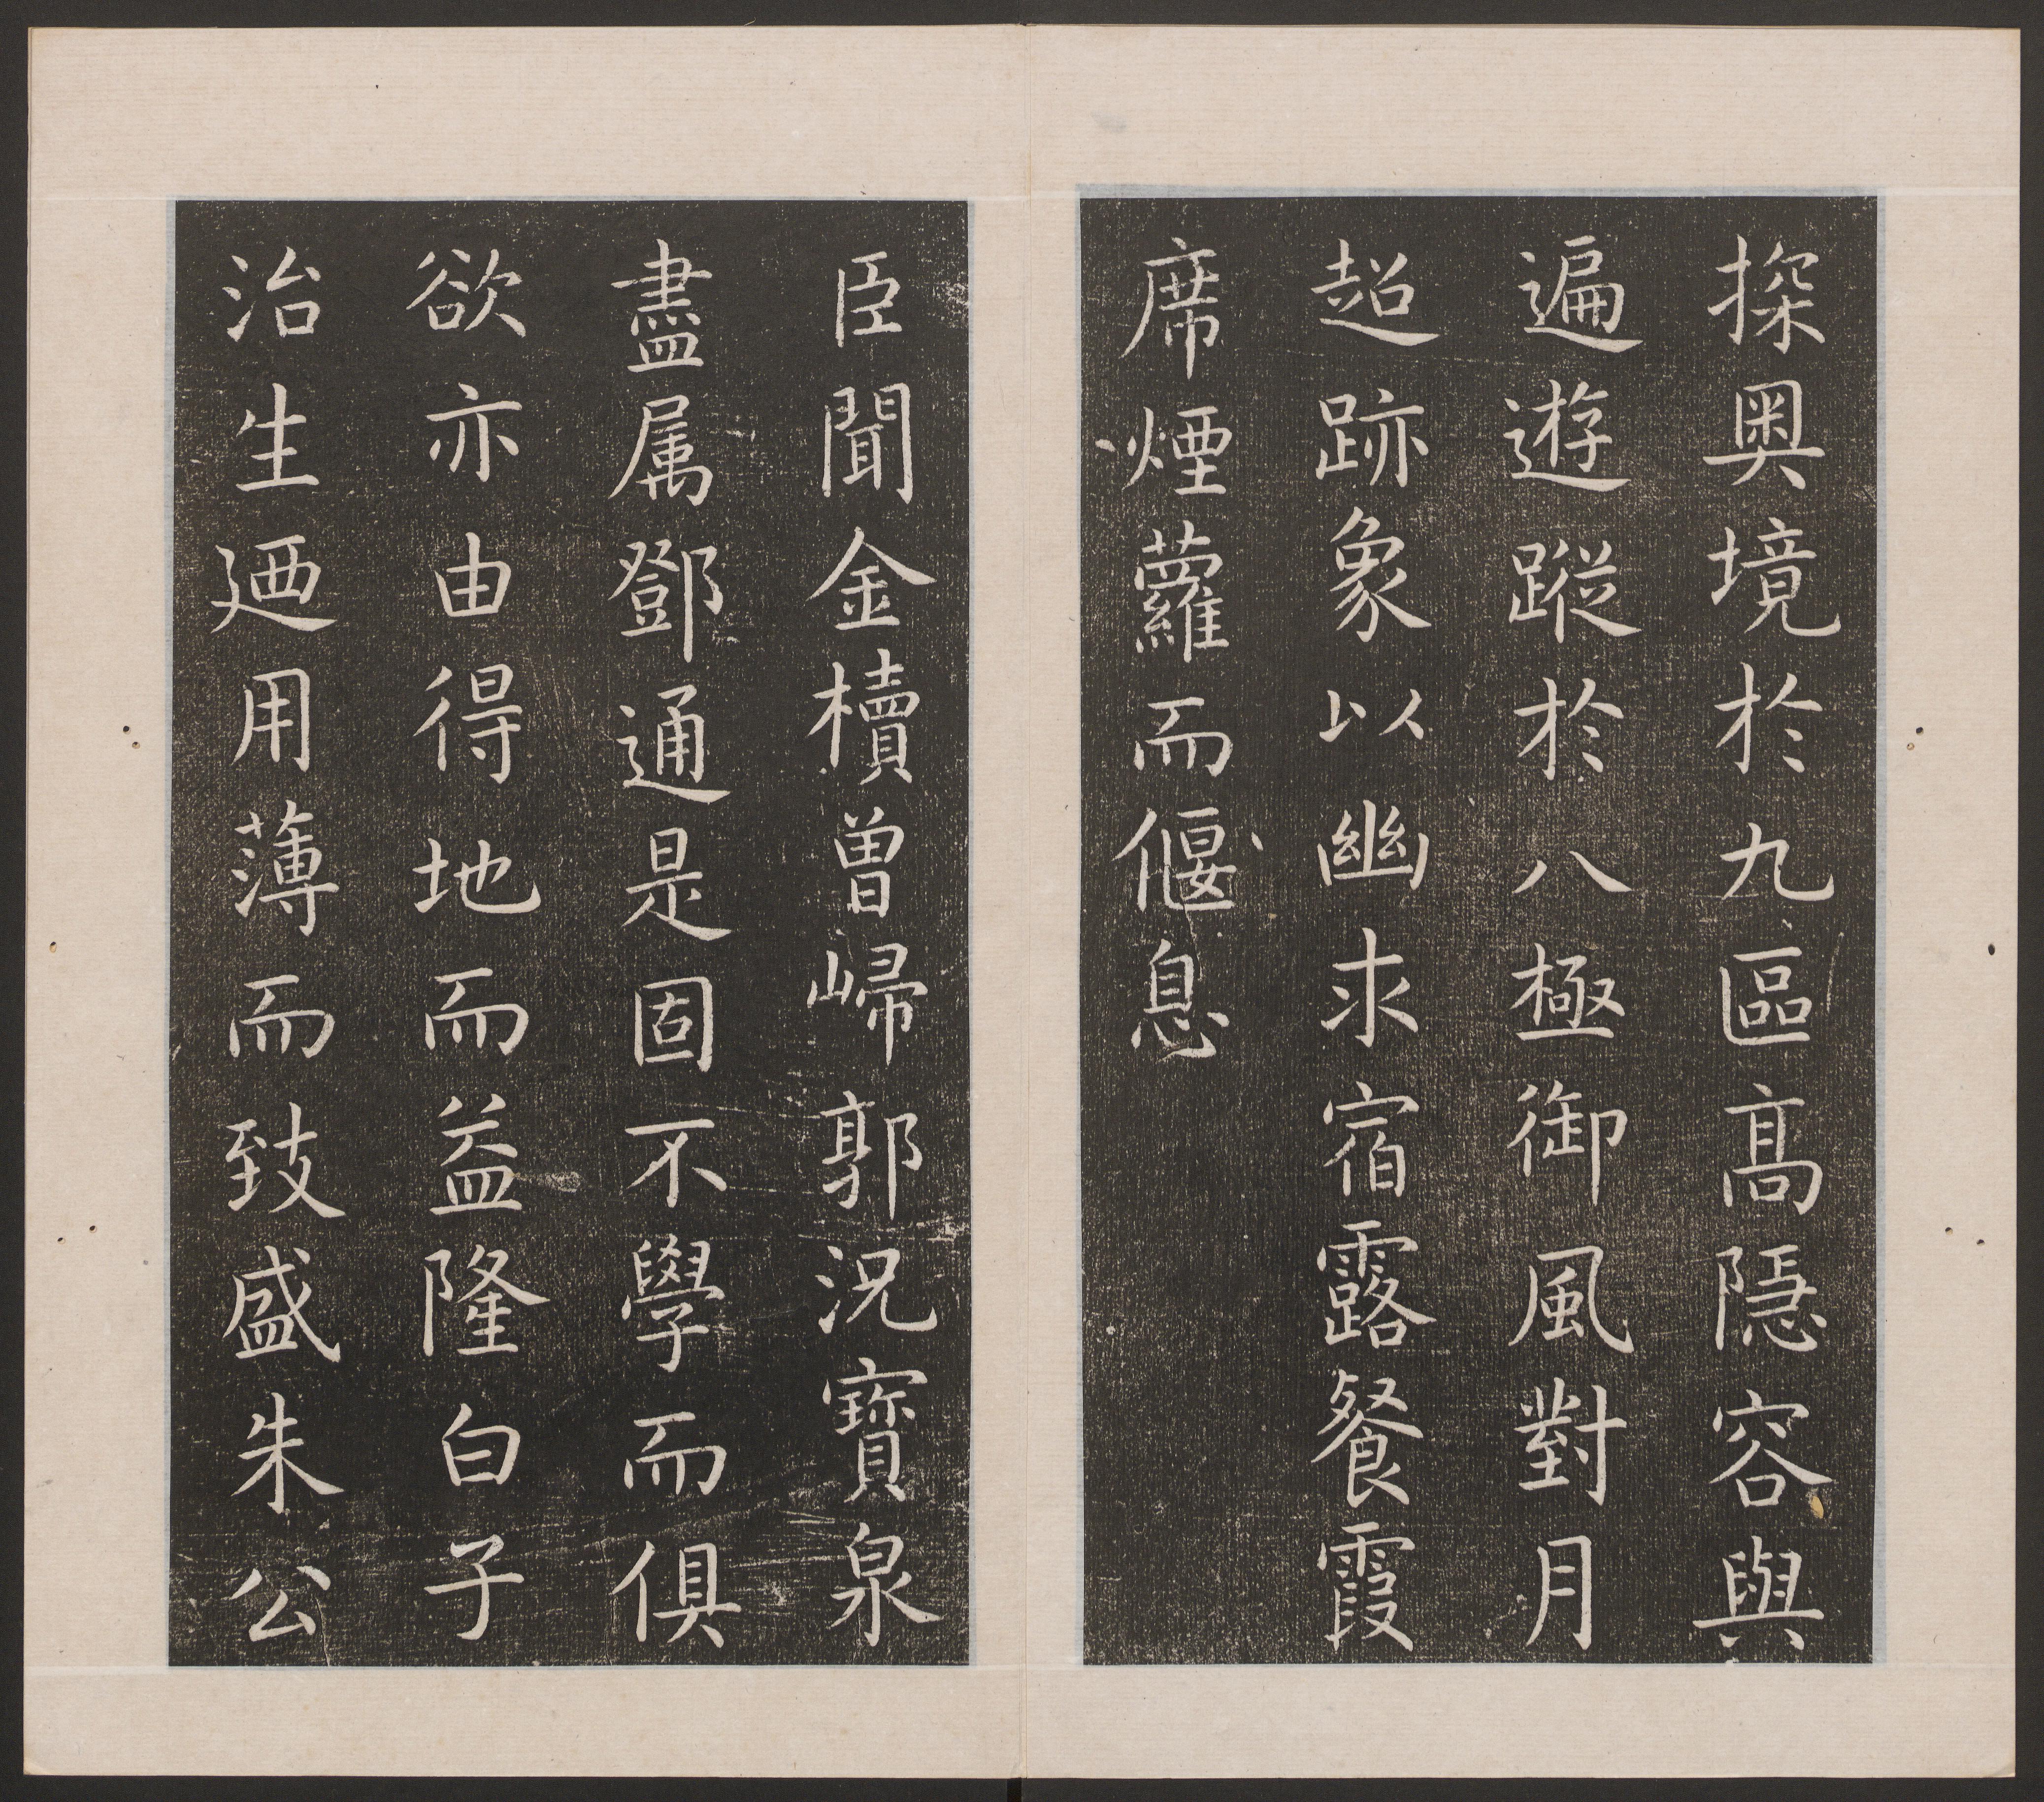 探奧境於九區高隱容與
遍遊蹤於八極御風對月
超跡象以幽求宿露餐霞
席煙蘿而偃息
臣聞金櫝曾歸郭況寶泉
盡属鄧通是固不學而俱
欲亦由得地而益隆白子
治生廼用薄而致盛朱公